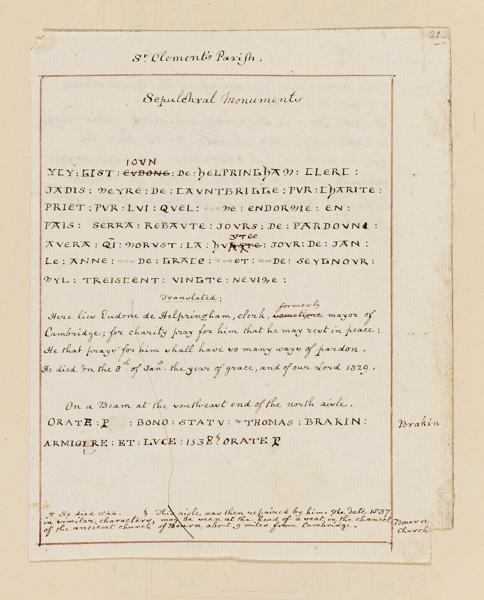 21
St Clement's Parish.
Sepulchral Monuments
IOUN
YCY : GIST : EUDONE : DE : HELPRINGHAM : CLERC :
JADIS : MEYRE : DE : CAUNTBRIGGE : PUR : CHARITE :
PRIET : PUR : LUI : QUEL == NE : ENDORME : EN :
PAIS : SERRA : REBAUTE : JOURS : DE : PARDOUN :
AVERA : QI : MORUST : LA : JOUR : DE : JAN :
LE : ANNE : == DE : GRACE == ET : == DE : SEYGNOUR :
MYL : TREISCENT : VINGTE : NEVIME :
Translated:
Here lies Eudone de Helpringham, clerk, sometime formerly mayor of
Cambridge; for charity pray for him that he may rest in peace:
He that prays for him shall have so many ways of pardon.
He died on the 8th of Jany. the year of grace, and of our Lord 1329.
On a Beam at the south-east end of the north aisle.
ORATE P : BONO : STATU : × THOMAS : BRAKIN :
Brakin
ARMIGERE : ET : LUCE : 1538 § ORATE P
× He died 1544. § This aisle was then repaired by him. The date 1537
in similar characters, may be seen at the head of a seat in the chancel
of the ancient church of Bourn, about 9 miles from Cambridge.
Bourn
Church